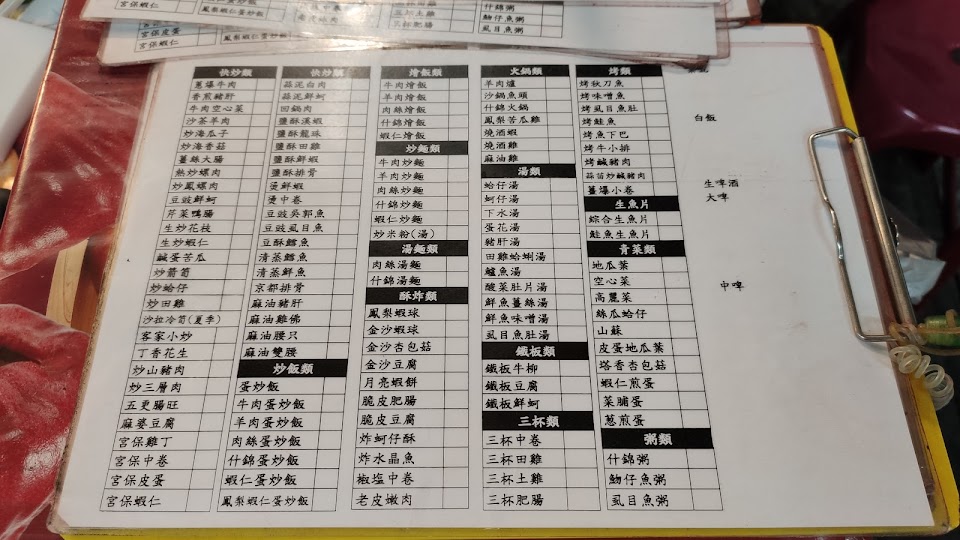 宮保蝦仁
鳳梨蝦仁蛋炒飯
什錦粥
魩仔魚粥
虱目魚粥
宮保皮蛋
宮保蝦仁
鳳梨蝦仁蛋炒飯
三杯肥腸
虱目魚粥
快炒類
蔥爆牛肉
香煎豬肝
牛肉空心菜
沙茶羊肉
炒海瓜子
炒海香菇
薑絲大腸
熱炒螺肉
炒鳳螺肉
豆豉鮮蚵
芹菜鴨腸
生炒花枝
生炒蝦仁
鹹蛋苦瓜
炒箭筍
炒蛤仔
炒田雞
沙拉冷筍(夏季)
客家小炒
丁香花生
炒山豬肉
炒三層肉
五更腸旺
麻婆豆腐
宮保雞丁
宮保中卷
宮保皮蛋
宮保蝦仁
快炒類
蒜泥白肉
蒜泥鮮蚵
回鍋肉
鹽酥溪蝦
鹽酥龍珠
鹽酥田雞
鹽酥鮮蝦
鹽酥排骨
燙鮮蝦
燙中卷
豆豉吳郭魚
豆豉虱目魚
豆酥鱈魚
清蒸鱈魚
清蒸鮮魚
京都排骨
麻油豬肝
麻油雞佛
麻油腰只
麻油雙腰
炒飯類
蛋炒飯
牛肉蛋炒飯
羊肉蛋炒飯
肉絲蛋炒飯
什錦蛋炒飯
蝦仁蛋炒飯
鳳梨蝦仁蛋炒飯
燴飯類
牛肉燴飯
羊肉燴飯
肉絲燴飯
什錦燴飯
蝦仁燴飯
炒麵類
牛肉炒麵
羊肉炒麵
肉絲炒麵
什錦炒麵
蝦仁炒麵
炒米粉(湯)
湯麵類
肉絲湯麵
什錦湯麵
酥炸類
鳳梨蝦球
金沙蝦球
金沙杏包菇
金沙豆腐
月亮蝦餅
脆皮肥腸
脆皮豆腐
炸蚵仔酥
炸水晶魚
椒塩中卷
老皮嫩肉
火鍋類
羊肉爐
沙鍋魚頭
什錦火鍋
鳳梨苦瓜雞
燒酒蝦
燒酒雞
麻油雞
湯類
蛤仔湯
蚵仔湯
下水湯
蛋花湯
豬肝湯
田雞蛤蜊湯
鱸魚湯
酸菜肚片湯
鮮魚薑絲湯
鮮魚味噌湯
虱目魚肚湯
鐵板類
鐵板牛柳
鐵板豆腐
鐵板鮮蚵
三杯類
三杯中卷
三杯田雞
三杯土雞
三杯肥腸
烤類
烤秋刀魚
烤味噌魚
烤虱目魚肚
烤鮭魚
烤魚下巴
烤牛小排
烤鹹豬肉
蒜苗炒鹹豬肉
薑爆小卷
生魚片
綜合生魚片
鮭魚生魚片
青菜類
地瓜葉
空心菜
高麗菜
絲瓜蛤仔
山蘇
皮蛋地瓜葉
塔香杏包菇
蝦仁煎蛋
菜脯蛋
蔥煎蛋
粥類
什錦粥
魩仔魚粥
虱目魚粥
白飯
生啤酒
大啤
中啤